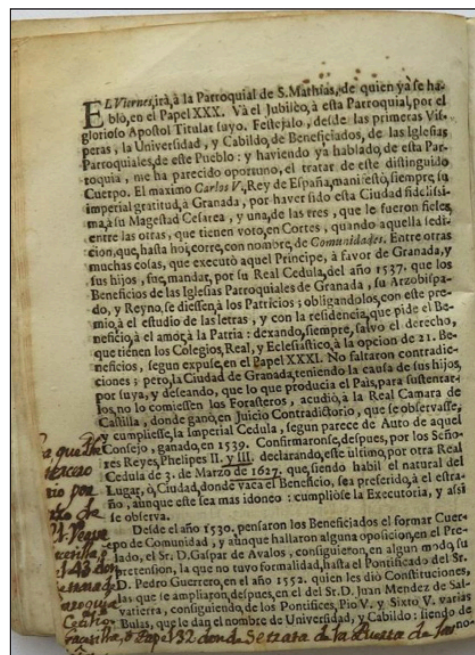 EL Viernes, irà, à la Parroquial de S. Mathías, de quien yà se ha-
blò, en el Papel XXX. Và el Jubileo, à esta Parroquial, por el
glorioso Apostol Titular suyo. Festejalo, desde las primeras Vis-
peras, la Universidad, y Cabildo, de Beneficiados, de las Iglesias
Parroquiales, de este Pueblo: y haviendo yà hablado, de esta Par-
roquia, me ha parecido oportuno, el tratar de este distinguido
Cuerpo. El maximo Carlos V. Rey de España, manifestò, siempre, su
imperial gratitud, à Granada, por haver sido esta Ciudad fidelissi-
ma, à su Magestad Cesarea, y una, de las tres, que le fueron fieles,
entre las otras, que tienen voto, en Cortes, quando aquella sedi-
cion, que, hasta hoi, corre, con nombre, de Comunidades. Entre otras
muchas cosas, que executò aquel Principe, à favor de Granada, y
sus hijos, fue, mandar, por su Real Cedula, del año 1537. que los
Beneficios de las Iglesias Parroquiales de Granada, su Arzobispa-
do, y Reyno, se diessen, à los Patricios; obligandolos, con este pre-
mio, à el estudio de las letras, y con la residencia, que pide el Be-
neficio, à el amor, à la Patria: dexando, siempre, salvo el derecho,
que tienen los Colegios, Real, y Eclesiastico, à la opcion de 21. Be-
neficios, segun expuse, en el Papel XXXI. No faltaron contradic-
ciones; pero, la Ciudad de Granada, teniendo la causa de sus hijos,
por suya, y deseando, que lo que producia el Pais, para sustentar-
los, no lo comiessen los Forasteros, acudiò, à la Real Camara de
Castilla, donde ganò, en Juicio Contradictorio, que se observasse,
y cumpliesse, la Imperial Cedula, segun parece de Auto de aquel
Consejo, ganado, en 1539. Confirmaronse, despues, por los Seño-
res Reyes, Phelipes II. y III. declarando, este ultimo, por otra Real
Cedula de 3. de Marzo de 1627. que, siendo habil el natural del
Lugar, ò, Ciudad, donde vaca el Beneficio, sea preferido, à el estra-
ño, aunque este sea mas idoneo: cumpliòse la Executoria, y assi
se observa.
Desde el año 1530. pensaron los Beneficiados el formar Cuer-
po de Comunidad, y aunque hallaron alguna oposicion, en el Pre-
lado, el Sr. D. Gaspar de Avalos, consiguieron, en algun modo, su
pretension, la que no tuvo formalidad, hasta el Pontificado del Sr.
D. Pedro Guerrero, en el año 1552. quien les diò Constituciones,
las que se ampliaron, despues, en el del Sr. D. Juan Mendez de Sal-
vatierra, consiguiendo, de los Pontifices, Pio V. y Sixto V. varias
Bulas, que le dan el nombre de Universidad, y Cabildo: siendo de
no-
que
por
de
143 don
Cecilio
132 donde Se trata de la